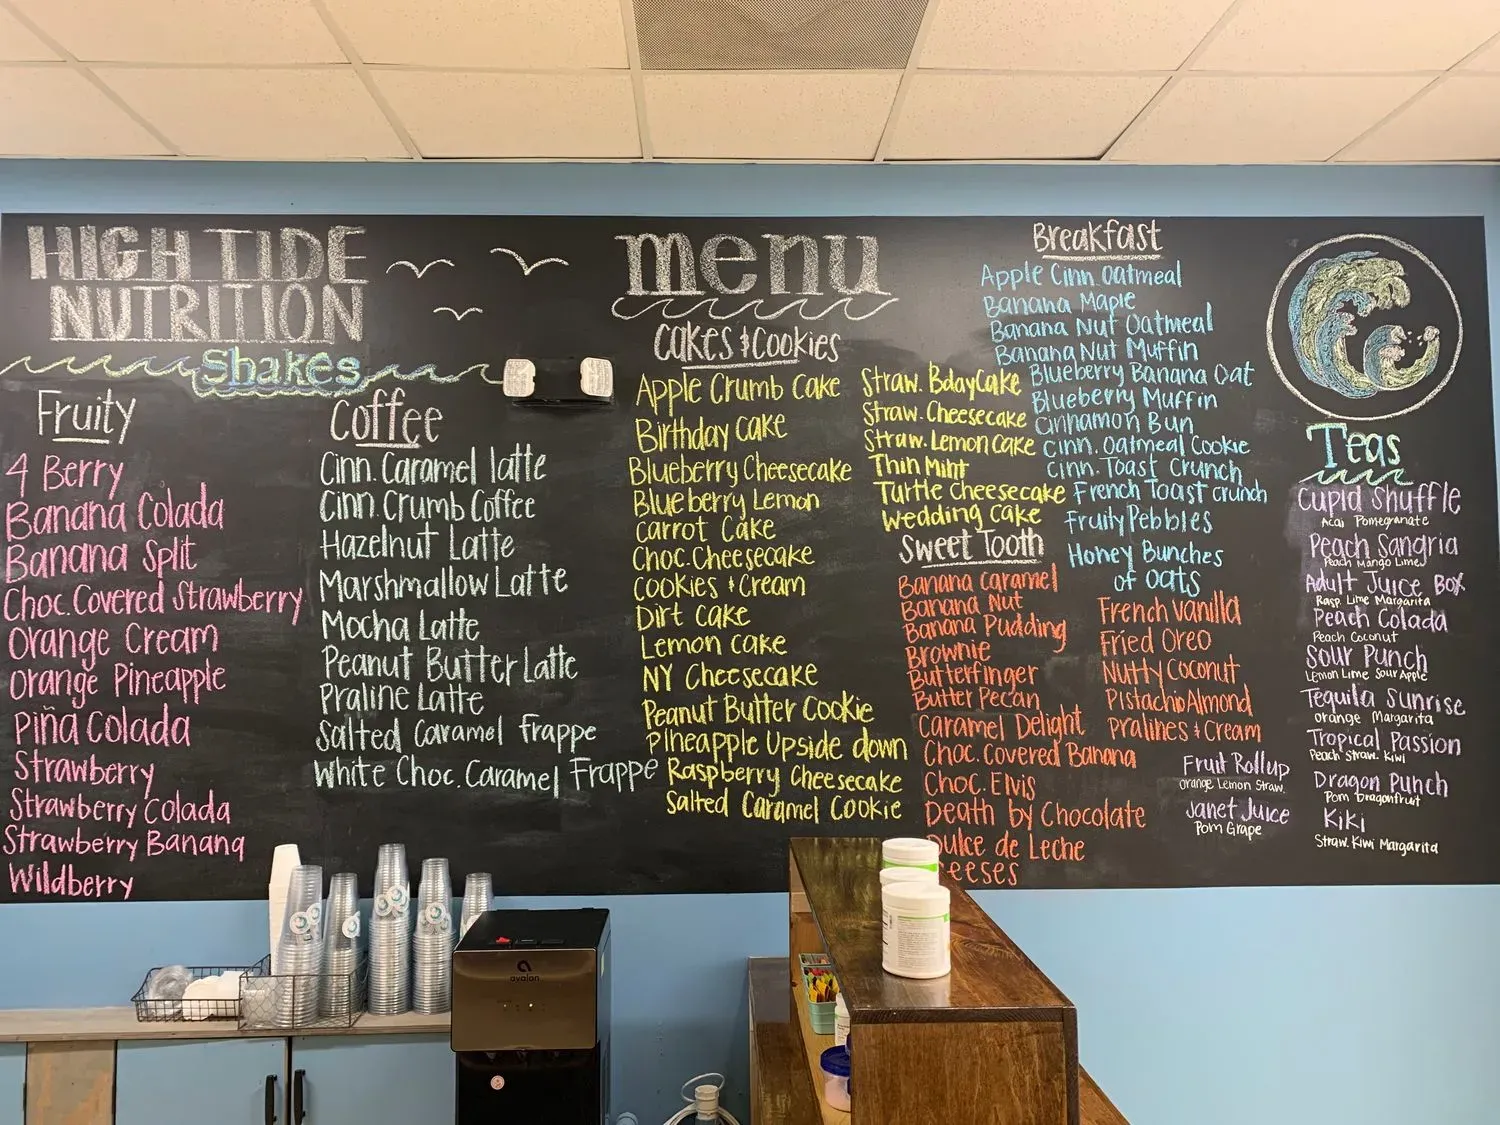 HIGH TIDE
NUTRITION
Shakes
Fruity
4 Berry
Banana Colada
Banana Split
Choc. Covered Strawberry
Orange Cream
Orange Pineapple
Piña Colada
Strawberry
Strawberry Colada
Strawberry Banana
Wildberry
Coffee
Cinn. Caramel latte
Cinn. Crumb Coffee
Hazelnut Latte
Marshmallow Latte
Mocha Latte
Peanut Butter Latte
Praline Latte
Salted Caramel frappe
White Choc. Caramel Frappe
menu
Cakes & Cookies
Apple Crumb Cake
Birthday Cake
Blueberry Cheesecake
Blueberry Lemon
Carrot Cake
Choc. Cheesecake
Cookies & Cream
Dirt Cake
Lemon Cake
NY Cheesecake
Peanut Butter Cookie
Pineapple Upside down
Raspberry Cheesecake
Salted Caramel Cookie
Straw. Bday Cake
Straw. Cheesecake
Straw. Lemon Cake
Thin Mint
Turtle Cheesecake
Wedding Cake
Sweet Tooth
Banana Caramel
Banana Nut
Banana Pudding
Brownie
Butterfinger
Butter Pecan
Caramel Delight
Choc. Covered Banana
Choc. Elvis
Death by Chocolate
Dulce de Leche
eeses
French Vanilla
Fried Oreo
Nutty Coconut
Pistachio Almond
Pralines & Cream
Breakfast
Apple Cinn. Oatmeal
Banana Maple
Banana Nut Oatmeal
Banana Nut Muffin
Blueberry Banana Oat
Blueberry Muffin
Cinnamon Bun
Cinn. Oatmeal Cookie
Cinn. Toast Crunch
French Toast Crunch
Fruity Pebbles
Honey Bunches
of Oats
Teas
Cupid Shuffle
Acai Pomegranate
Peach Sangria
Peach Mango Lime
Adult Juice Box
Rasp. Lime Margarita
Peach Colada
Peach Coconut
Sour Punch
Lemon Lime Sour Apple
Tequila Sunrise
Orange Margarita
Tropical Passion
Peach Straw. Kiwi
Dragon Punch
Pom Dragonfruit
Kiki
Straw. Kiwi Margarita
Fruit Rollup
Orange Lemon Straw.
Janet Juice
Pom Grape
avalon